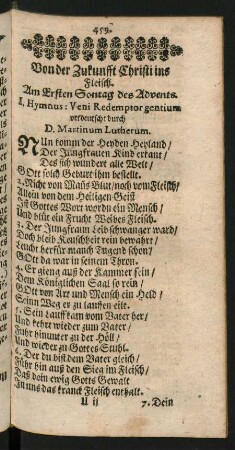 459.
Von der Zukunfft Christi ins
Fleisch.
Am Ersten Sontag des Advents.
I. Hymnus: Veni Redemptor gentium
verdeutscht durch
D. Martinum Lutherum.
NUn komm der Heyden Heyland/
Der Jungfrauen Kind erkant/
Des sich wundert alle Welt/
GOtt solch Geburt ihm bestellt.
2. Nicht von Mañs Blut/noch vom Fleisch/
Allein von dem Heiligen Geist
Ist Gottes Wort wordn ein Mensch/
Und blüt ein Frucht Weibes Fleisch.
3. Der Jungfraun Leib schwanger ward/
Doch bleib Keuschheit rein bewahrt/
Leucht herfür manch Tugend schon/
GOtt da war in seinem Thron.
4. Er gieng auß der Kammer sein/
Dem Königlichen Saal so rein/
GOtt von Art und Mensch ein Held/
Seinn Weg er zu lauffen eilt.
5. Sein Lauff kam vom Vater her/
Und kehrt wieder zum Vater/
Fuhr hinunter zu der Höll/
Und wieder zu Gottes Stuhl.
6. Der du bist dem Vater gleich/
Führ hin auß den Sieg im Fleisch/
Daß dein ewig Gotts Gewalt
In uns das kranck Fleisch enthalt.
U ii 7. Dein